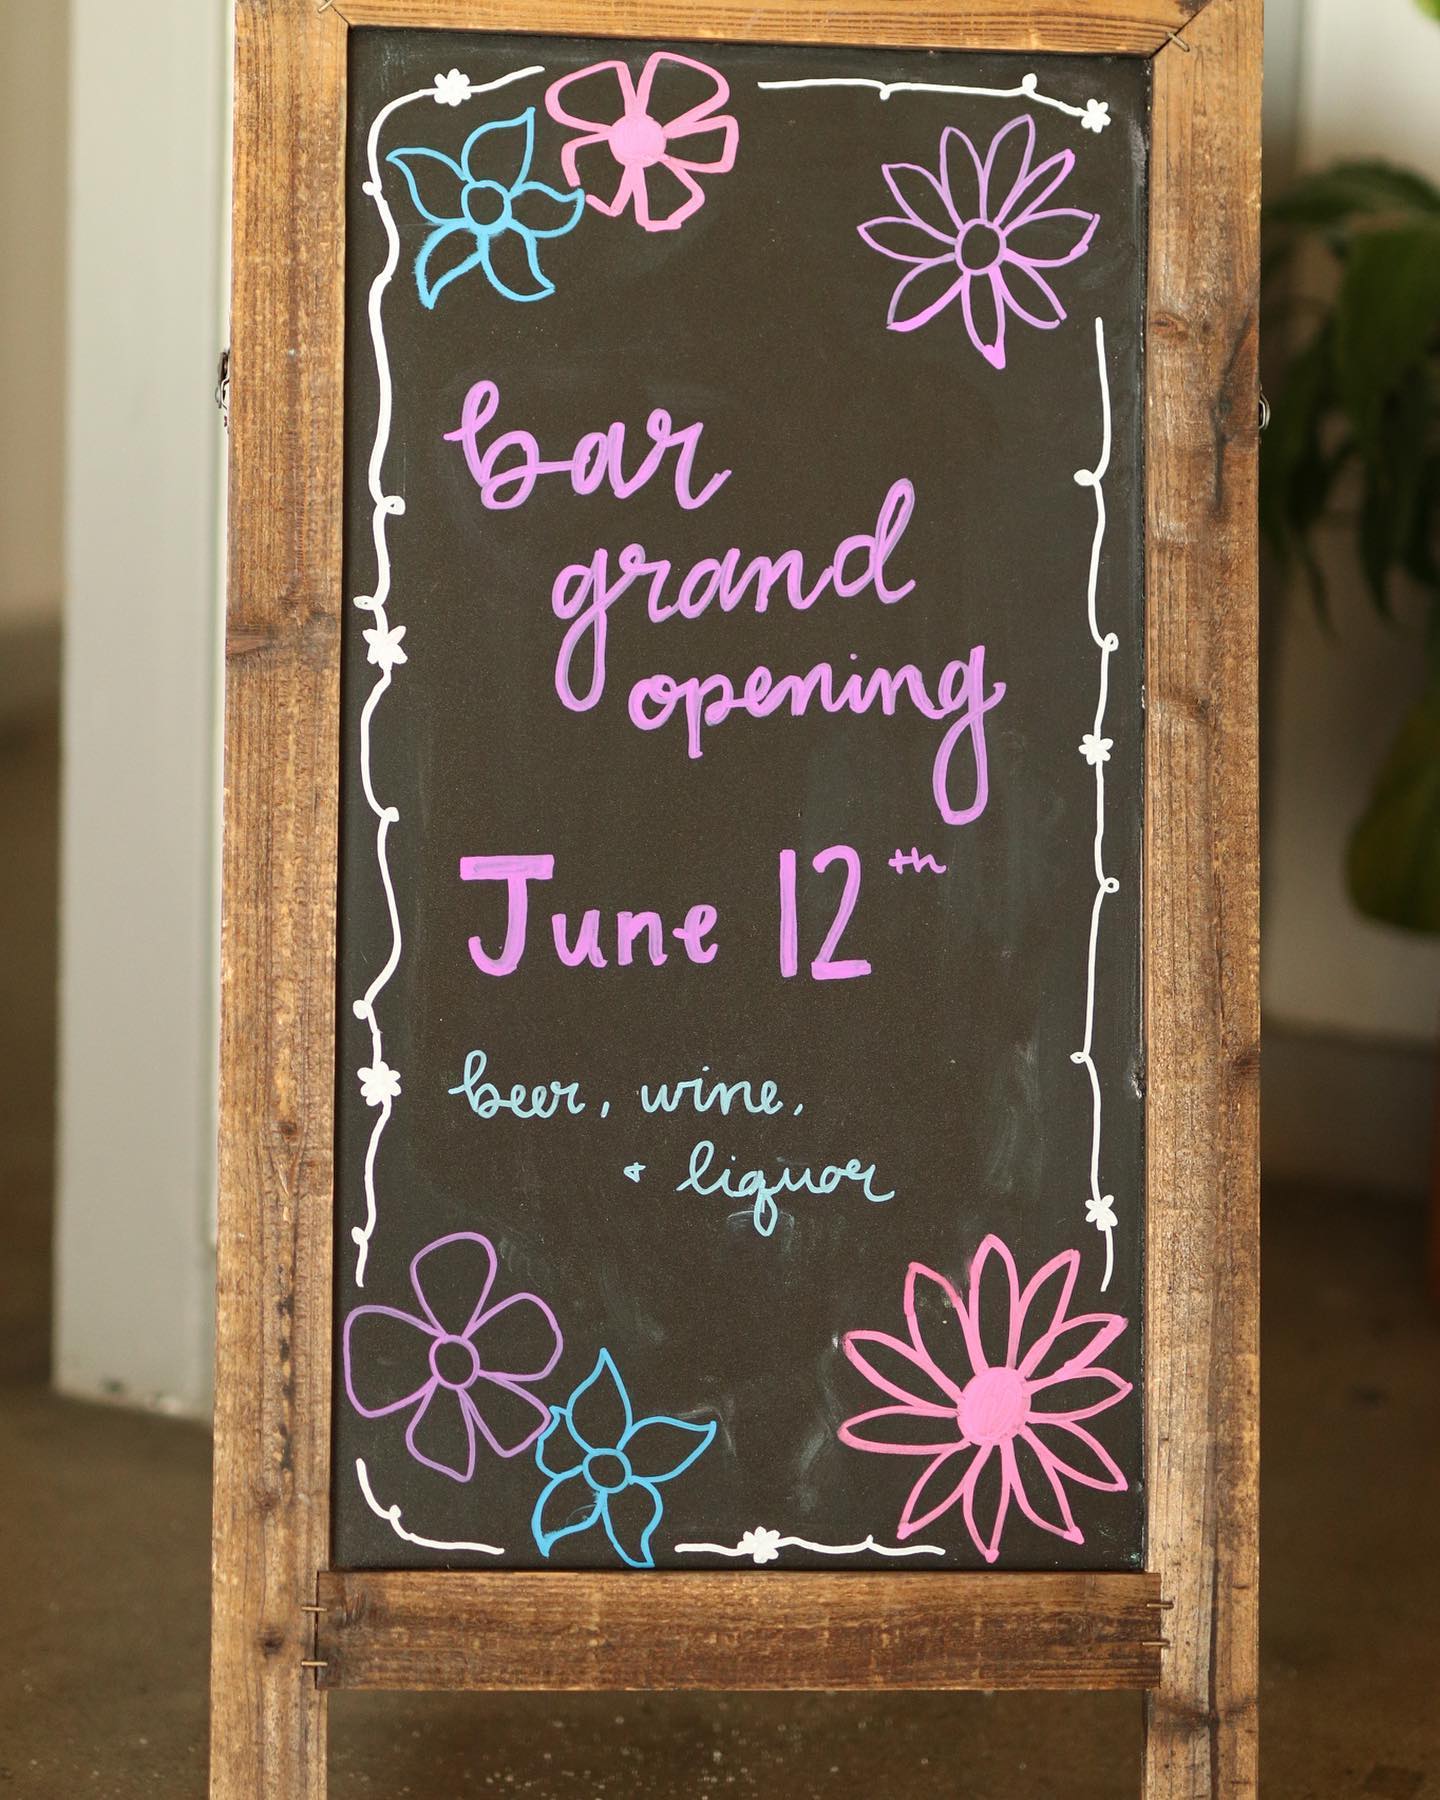 bar
grand
opening
June 12th
beer, wine,
+ liquor